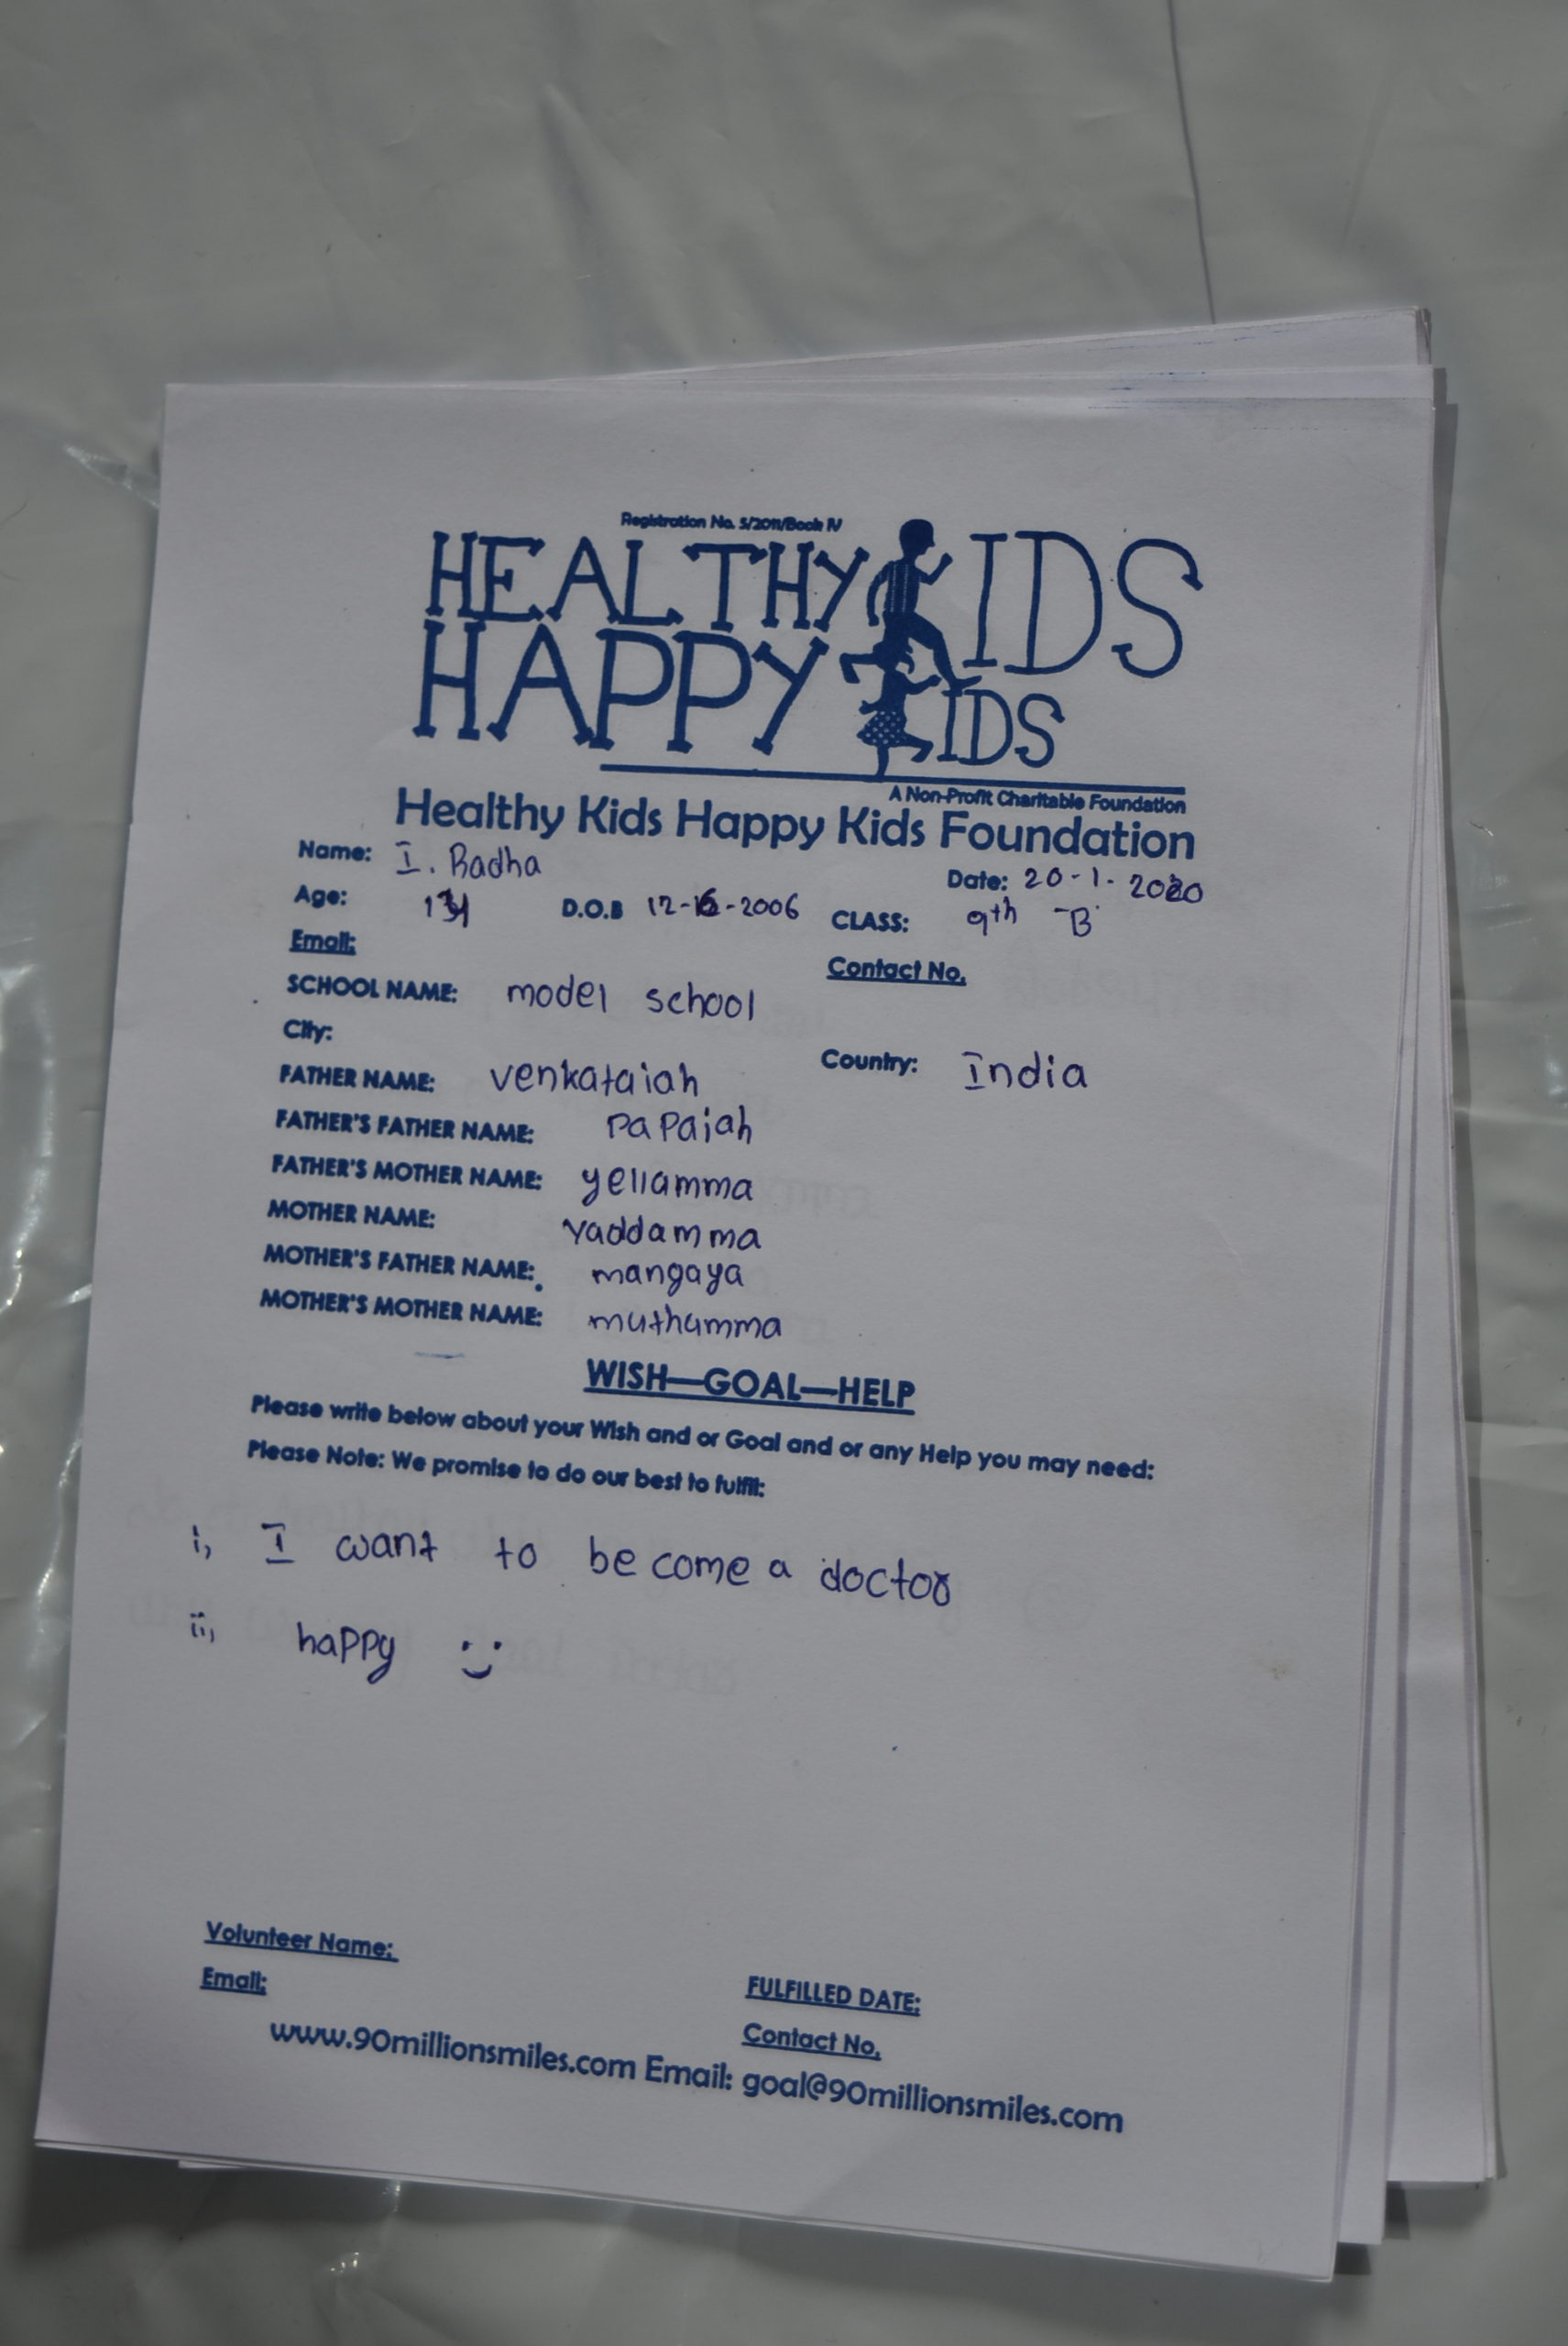 Registration No. 5/2011/Book IV
HEALTHY KIDS
HAPPY KIDS
A Non-Profit Charitable Foundation
Healthy Kids Happy Kids Foundation
Name: I. Radha
Date: 20-1-2020
Age: D.O.B CLASS: 9th B
Email:
Contact No.
SCHOOL NAME: model school
City:
Country: India
FATHER NAME: venkataiah
FATHER'S FATHER NAME: Papaiah
FATHER'S MOTHER NAME: yellamma
MOTHER NAME: Yaddamma
MOTHER'S FATHER NAME: mangaya
MOTHER'S MOTHER NAME: muthamma
WISH—GOAL—HELP
Please write below about your Wish and or Goal and or any Help you may need:
Please Note: We promise to do our best to fulfil:
i, I want to be come a doctor
ii, happy
Volunteer Name:
Email:
FULFILLED DATE:
Contact No.
www.90millionsmiles.com Email: goal@90millionsmiles.com